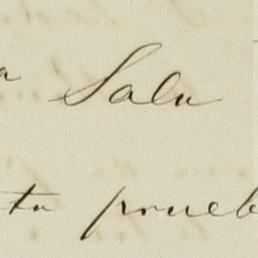 a Sala
ta prueb